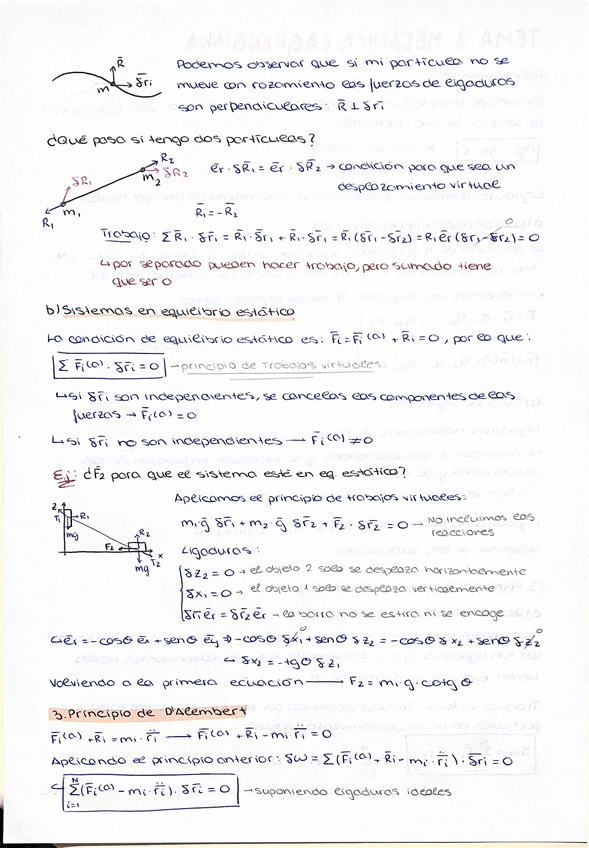 R̄
m
δr̄i
Podemos observar que si mi partícula no se
mueve con rozamiento las fuerzas de ligaduras
son perpendiculares: R̄ ⊥ δr̄i
¿Qué pasa si tengo dos partículas?
δR̄1
R2
δR2
m2
m1
R1
ēr · δR̄1 = ēr · δR̄2 → condición para que sea un
desplazamiento virtual
R1 = -R̄2
Trabajo: Σ R̄1 · δr̄i = R̄1 · δr̄1 + R̄1 · δr̄1 = R̄1(δr̄1-δr̄2) = R1 ēr (δr̄1-δr̄2) = 0
0
↳ por separado pueden hacer trabajo, pero sumado tiene
que ser 0
b) Sistemas en equilibrio estático
La condición de equilibrio estático es: F̄i = F̄i(a) + R̄i = 0, por lo que:
Σ F̄i(a) · δr̄i = 0 → principio de Trabajos virtuales
↳ si δr̄i son independientes, se cancelas las componentes de las
fuerzas → F̄i(a) = 0
↳ si δr̄i no son independientes → F̄i(a) ≠ 0
Ej: ¿F̄2 para que el sistema esté en eq. estático?
Z
T1
R1
mg
F2
R2
x
mg
T2
Aplicamos el principio de trabajos virtuales:
m1·ḡ δr̄1 + m2·ḡ δr̄2 + F̄2 · δr̄2 = 0 → No incluimos las
reacciones
Ligaduras:
δz2 = 0 → el objeto 2 solo se desplaza horizontalmente
δx1 = 0 → el objeto 1 solo se desplaza verticalmente
δr̄1 ēr = δr̄2 ēr → la barra no se estira ni se encoge
↳ ēr = -cosθ ēx + senθ ēy ⇒ -cosθ δx1 + senθ δz2 = -cosθ δx2 + senθ δz2
0
0
↳ δx2 = -tgθ δz1
Volviendo a la primera ecuación → F2 = m1·g·cotgθ
3. Principio de D'Alembert
F̄i(a) + R̄i = mi · r̈i → F̄i(a) + R̄i - mi · r̈i = 0
Aplicando el principio anterior: δW = Σ(F̄i(a) + R̄i - mi · r̈i) · δr̄i = 0
↳ Σ(F̄i(a) - mi · r̈i) · δr̄i = 0 → suponiendo ligaduras ideales
N
i=1